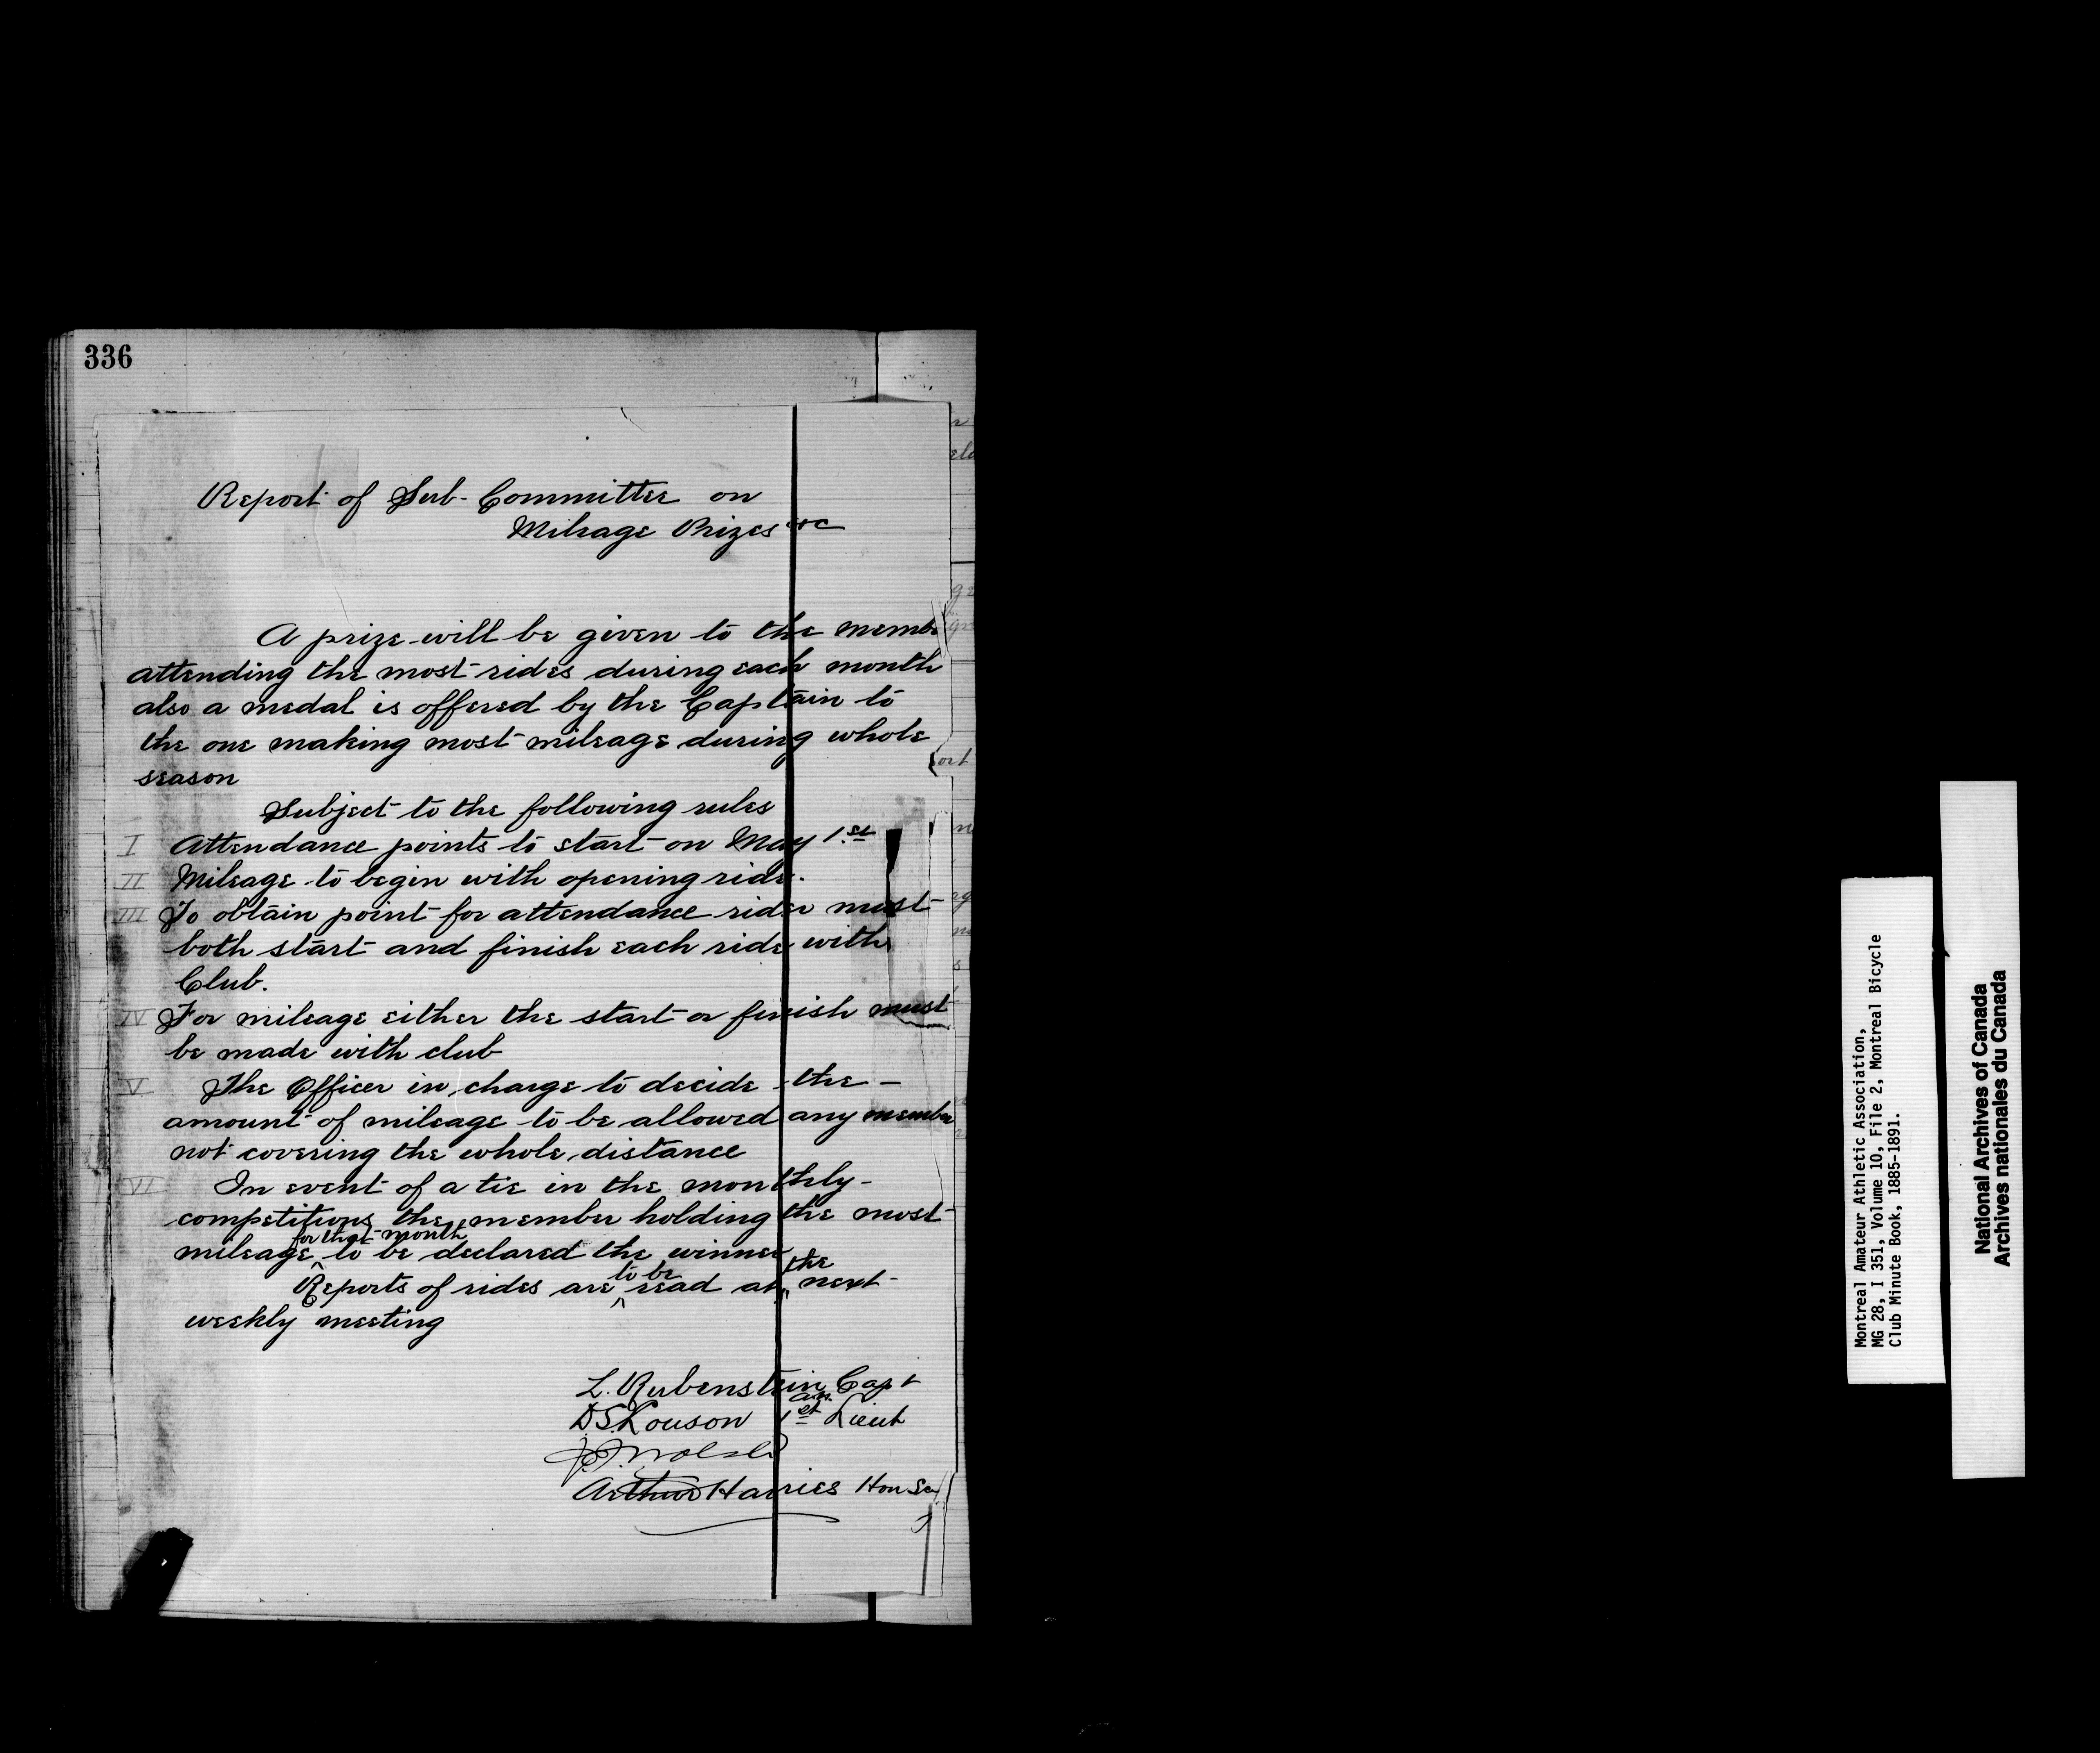 336
Report of Sub-Committee on
Mileage Prizes &c
A prize will be given to the membe
attending the most rides during each month
also a medal is offered by the Captain to
the one making most mileage during whole
season
Subject to the following rules
I Attendance points to start on May 1.st
II Mileage to begin with opening ride.
III To obtain point for attendance rider must
both start and finish each ride with
Club.
IV For mileage either the start or finish must
be made with club
V The Officer in charge to decide the
amount of mileage to be allowed any member
not covering the whole distance
VI In event of a tie in the monthly
competitions the member holding the most
for that month
mileage to be declared the winner
to be the
Reports of rides are read at next
weekly meeting
L. Rubenstein Capt
D.S. Louson 1st Lieut
Arthur Harries Hon Sec
Montreal Amateur Athletic Association,
MG 28, I 351, Volume 10, File 2, Montreal Bicycle
Club Minute Book, 1885-1891.
National Archives of Canada
Archives nationales du Canada